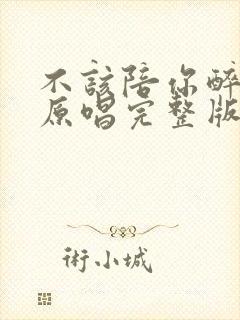 不該陪你醉
原唱完整版
術小城